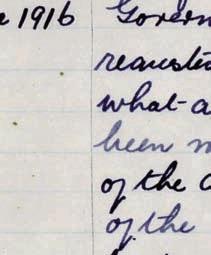 1916 Govern
requeste
what a
been m
of the
of the